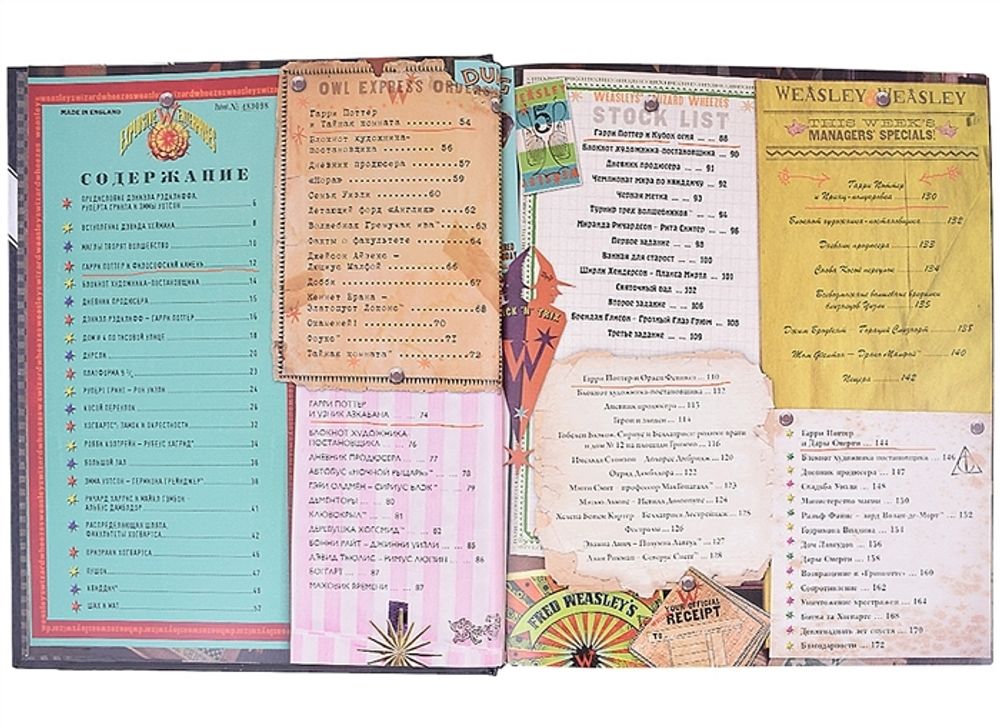 weasleyswizardwheezesweasleyswizardwheezes
MADE IN ENGLAND
Patent.№ 483098
EXPLOSIVE ENTERPRISES
СОДЕРЖАНИЕ
ПРЕДИСЛОВИЕ ДЭНИЭЛА РЭДКЛИФФА,
РУПЕРТА ГРИНТА И ЭММЫ УОТСОН 6
ВСТУПЛЕНИЕ ДЭВИДА ХЕЙМАНА 8
МАГЛЫ ТВОРЯТ ВОЛШЕБСТВО 10
ГАРРИ ПОТТЕР И ФИЛОСОФСКИЙ КАМЕНЬ 12
БЛОКНОТ ХУДОЖНИКА-ПОСТАНОВЩИКА 14
ДНЕВНИК ПРОДЮСЕРА 15
ДЭНИЭЛ РЭДКЛИФФ – ГАРРИ ПОТТЕР 16
ДОМ № 4 ПО ТИСОВОЙ УЛИЦЕ 18
ДУРСЛИ 20
ПЛАТФОРМА 9 ¾ 23
РУПЕРТ ГРИНТ – РОН УИЗЛИ 24
КОСОЙ ПЕРЕУЛОК 26
ХОГВАРТС: ЗАМОК И ОКРЕСТНОСТИ 32
РОББИ КОЛТРЕЙН – РУБЕУС ХАГРИД 34
БОЛЬШОЙ ЗАЛ 36
ЭММА УОТСОН – ГЕРМИОНА ГРЕЙНДЖЕР 38
РИЧАРД ХАРРИС И МАЙКЛ ГЭМБОН –
АЛЬБУС ДАМБЛДОР 41
РАСПРЕДЕЛЯЮЩАЯ ШЛЯПА.
ФАКУЛЬТЕТЫ ХОГВАРТСА 42
ПРИЗРАКИ ХОГВАРТСА 45
ПУШОК 47
КВИДДИЧ 48
ШАХ И МАТ 52
OWL EXPRESS ORDERS
Гарри Поттер
и Тайная комната 54
Блокнот художника-
постановщика 56
Дневник продюсера 57
«Нора» 59
Семья Уизли 60
Летающий форд «Англия» 62
Волшебная Гремучая ива™ 63
Факты о факультете 64
Джейсон Айзекс –
Люциус Малфой 66
Добби 67
Кеннет Брана –
Златопуст Локонс 68
Окаменей! 70
Фоукс™ 71
Тайная комната™ 72
ГАРРИ ПОТТЕР
И УЗНИК АЗКАБАНА 74
БЛОКНОТ ХУДОЖНИКА
ПОСТАНОВЩИКА 76
ДНЕВНИК ПРОДЮСЕРА 77
АВТОБУС «НОЧНОЙ РЫЦАРЬ» 78
ГЭРИ ОЛДМЕН – СИРИУС БЛЭК 79
ДЕМЕНТОРЫ 80
КЛЮВОКРЫЛ™ 81
ДЕРЕВУШКА ХОГСМИД™ 82
БОННИ РАЙТ – ДЖИННИ УИЗЛИ 85
ДЭВИД ТЬЮЛИС – РИМУС ЛЮПИН 86
БОГГАРТ 87
МАХОВИК ВРЕМЕНИ 87
WEASLEYS' WIZARD WHEEZES
STOCK LIST
Гарри Поттер и Кубок огня 88
Блокнот художника-постановщика 90
Дневник продюсера 91
Чемпионат мира по квиддичу 92
Черная метка
Турнир трех волшебников™ 94
Миранда Ричардсон - Рита Скитер 96
Первое задание 98
Ванная для старост 100
Ширли Хендерсон - Плакса Миртл
Святочный бал
Второе задание 106
Брендан Глисон - Грозный Глаз Грюм 108
Третье задание 109
Гарри Поттер и Орден Феникса 110
Блокнот художника-постановщика 112
Дневник продюсера 113
Герои и злодеи 114
дом № 12 на площади Гриммо 116
Имельда Стонтон – Долорес Амбридж 120
Отряд Дамблдора 122
Мэгги Смит – профессор МакГонагалл 123
Мэтью Льюис – Невилл Долгопупс 124
Хелена Бонем Картер – Беллатриса Лестрейндж 125
Фестралы 126
Эванна Линч – Полумна Лавгуд 127
Алан Рикман – Северус Снегг 128
WEASLEY & WEASLEY
THIS WEEK'S
MANAGERS' SPECIALS!
Гарри Поттер
и Принц-полукровка 130
Блокнот художника-постановщика 132
Дневник продюсера 133
Снова Косой переулок 134
Всевозможные волшебные вредилки
близнецов Уизли 135
Джим Бродбент – Гораций Слизнорт 138
Том Фелтон – Драко Малфой™ 140
Пещера 142
Гарри Поттер
и Дары Смерти 144
Блокнот художника постановщика 146
Дневник продюсера 147
Свадьба Уизли 148
Министерство магии 150
Ральф Файнс – лорд Волан-де-Морт™ 152
Годрикова Впадина 154
Дом Лавгудов 156
Дары Смерти 158
Возвращение в «Гринготтс» 160
Сопротивление 162
Уничтожение крестражей 164
Битва за Хогвартс 168
Девятнадцать лет спустя 170
Благодарности 172
FRED WEASLEY'S
YOUR OFFICIAL
RECEIPT
TO